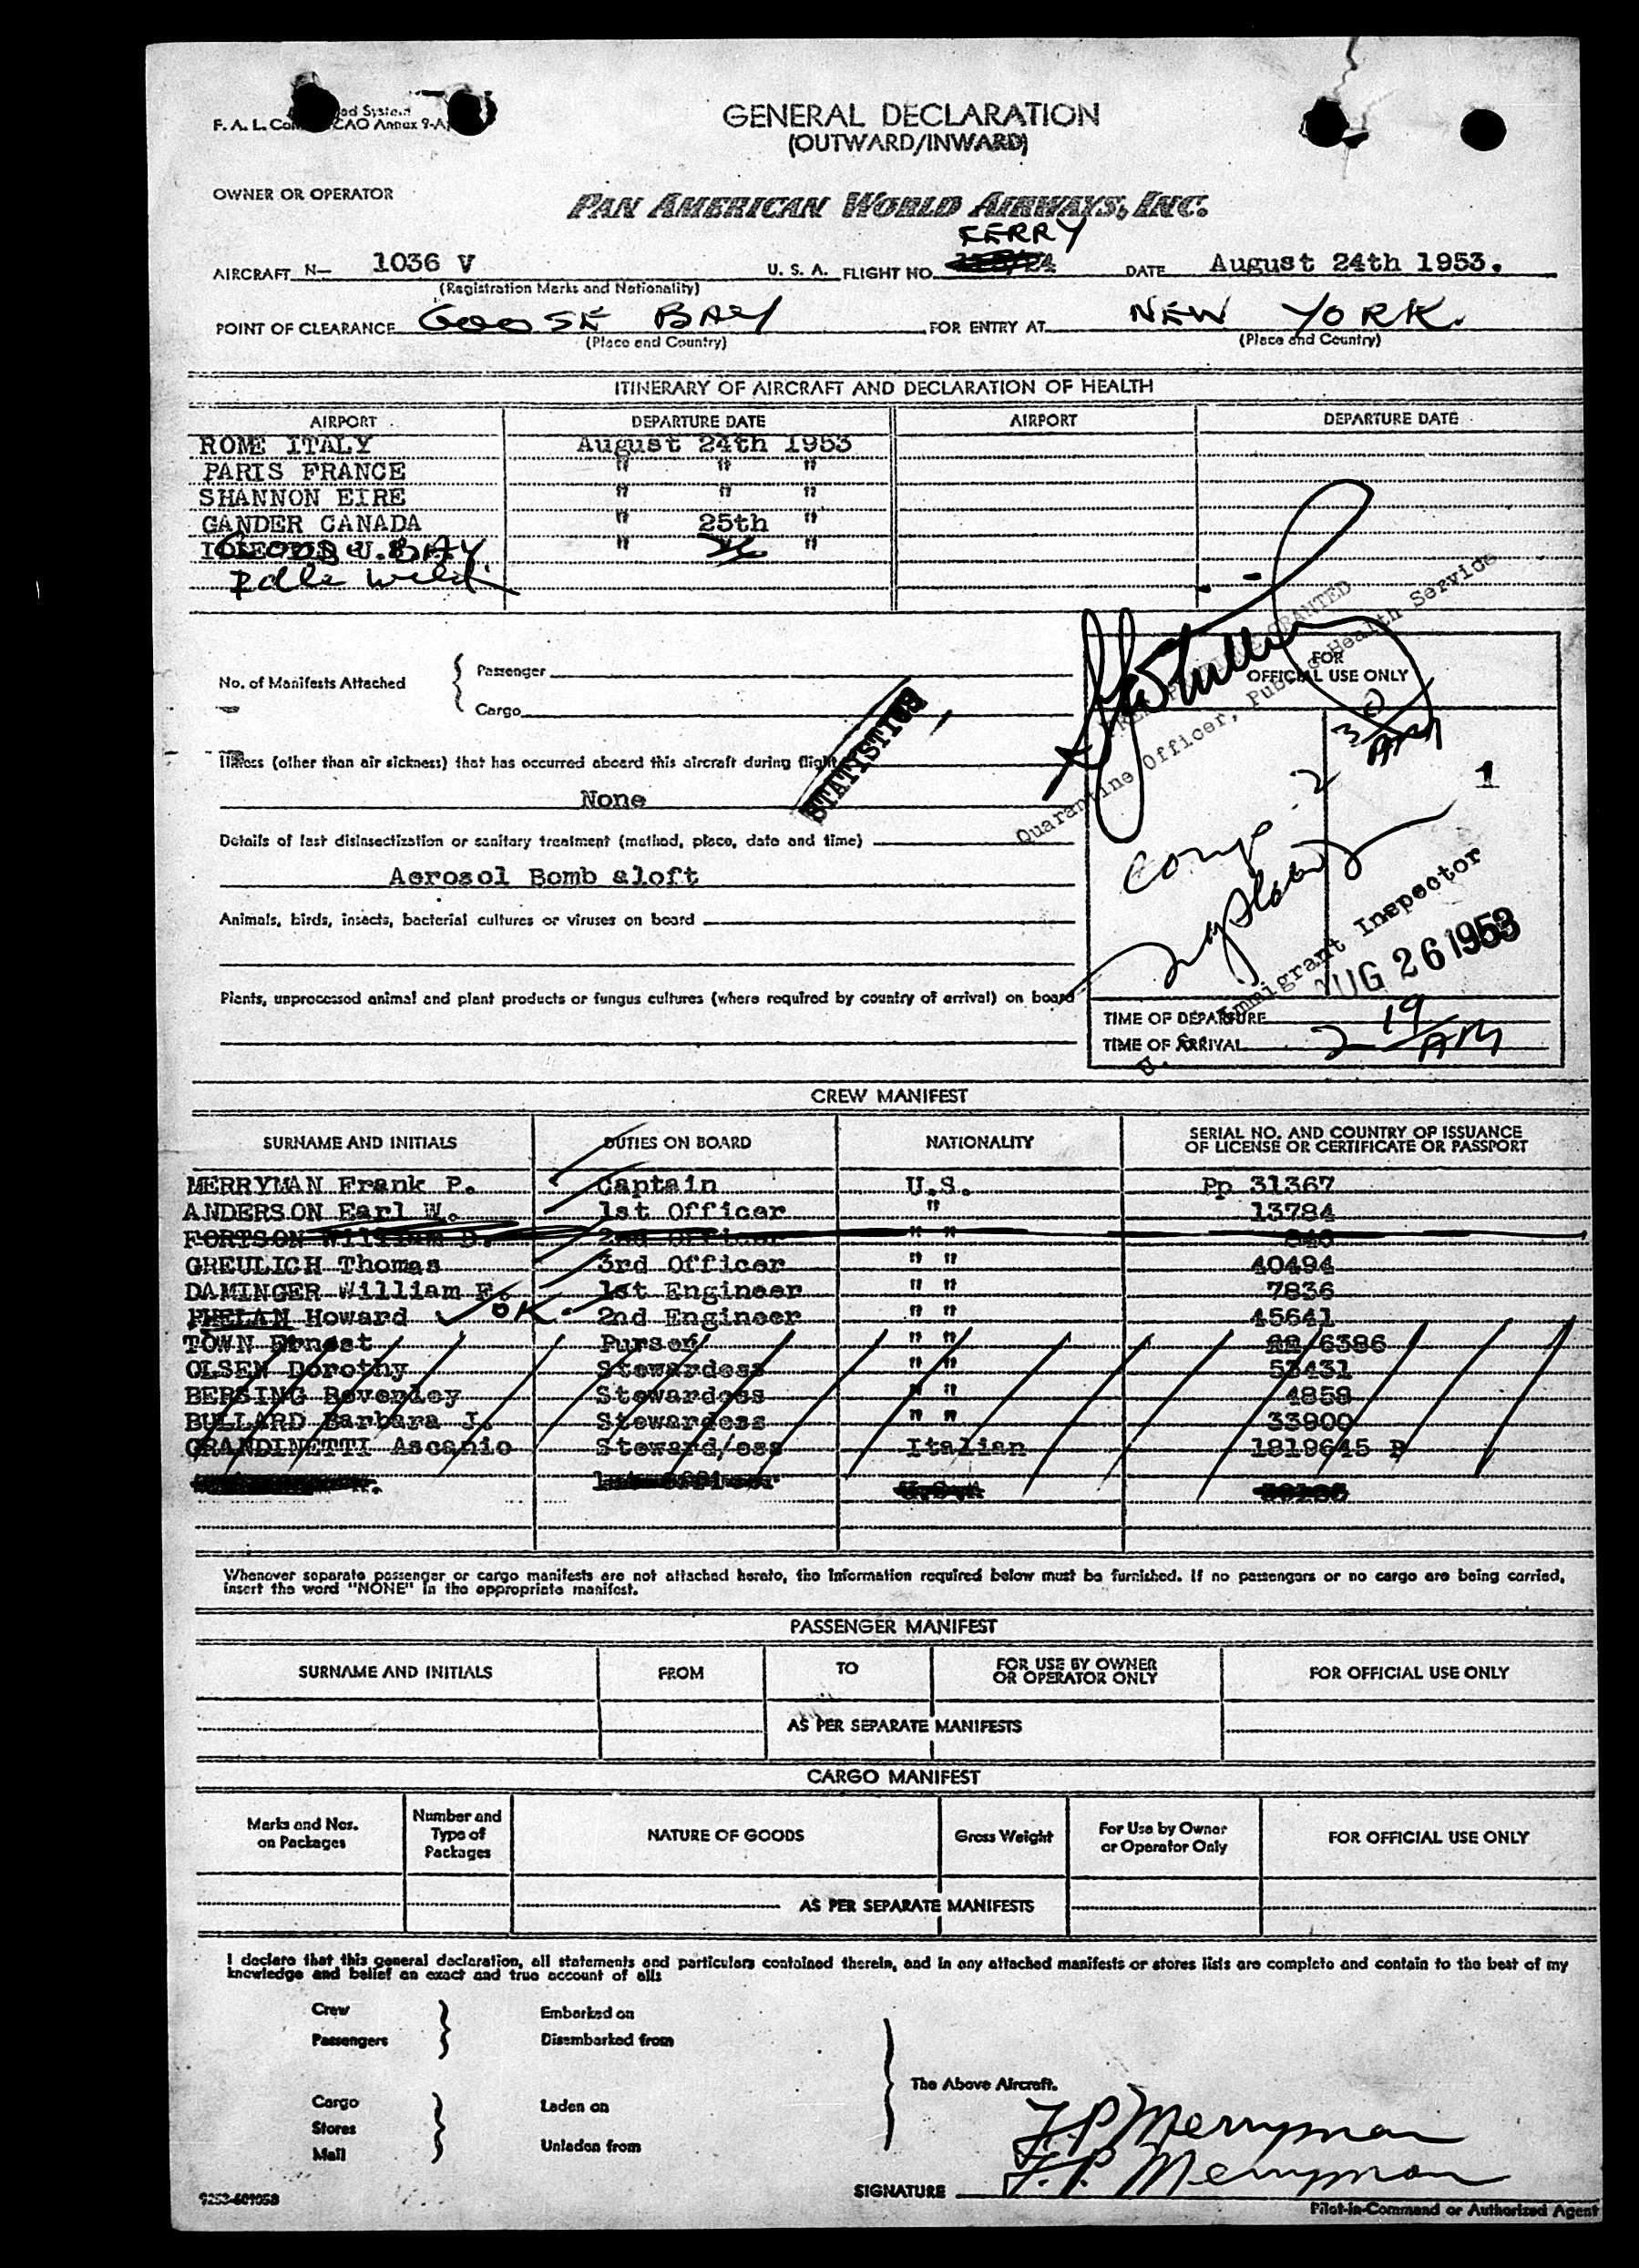 GENERAL DECLARATION
(OUTWARD/INWARD)
F. A. L. CAO Annex 9-A
OWNER OR OPERATOR
PAN AMERICAN WORLD AIRWAYS, INC.
FERRY
AIRCRAFT N- 1036 V U. S. A. FLIGHT NO. DATE August 24th 1953.
(Registration Marks and Nationality)
POINT OF CLEARANCE GOOSE BAY FOR ENTRY AT NEW YORK.
(Place and Country) (Place and Country)
ITINERARY OF AIRCRAFT AND DECLARATION OF HEALTH
AIRPORT DEPARTURE DATE AIRPORT DEPARTURE DATE
ROME ITALY August 24th 1953
PARIS FRANCE " " "
SHANNON EIRE " " "
GANDER CANADA " 25th "
GOOSE BAY " 26 "
Idle wild
No. of Manifests Attached
Passenger
Cargo
STATISTICS
FOR
OFFICIAL USE ONLY
Quarantine Officer, Public Health Service
Illness (other than air sickness) that has occurred aboard this aircraft during flight
None
Details of last disinsectization or sanitary treatment (method, place, date and time)
Aerosol Bomb aloft
Animals, birds, insects, bacterial cultures or viruses on board
Plants, unprocessed animal and plant products or fungus cultures (where required by country of arrival) on board
1
Immigrant Inspector
AUG 26 1953
TIME OF DEPARTURE
TIME OF ARRIVAL 2 19 AM
CREW MANIFEST
SURNAME AND INITIALS DUTIES ON BOARD NATIONALITY SERIAL NO. AND COUNTRY OF ISSUANCE OF LICENSE OR CERTIFICATE OR PASSPORT
MERRYMAN Frank P. Captain U.S. Pp 31367
ANDERSON Earl W. 1st Officer " 13784
FORTSON William D. 2nd Officer " " 840
GREULICH Thomas 3rd Officer " " 40494
DAMINGER William E. 1st Engineer " " 7836
PHELAN Howard OK. 2nd Engineer " " 45641
TOWN Ernest Purser " " 6386
OLSEN Dorothy Stewardess " " 53431
BERSING Beverley Stewardess " " 4858
BULLARD Barbara J. Stewardess " " 33900
GRANDINETTI Ascanio Steward/ess Italian 1819645 P
Whenever separate passenger or cargo manifests are not attached hereto, the information required below must be furnished. If no passengers or no cargo are being carried,
insert the word "NONE" in the appropriate manifest.
PASSENGER MANIFEST
SURNAME AND INITIALS FROM TO FOR USE BY OWNER OR OPERATOR ONLY FOR OFFICIAL USE ONLY
AS PER SEPARATE MANIFESTS
CARGO MANIFEST
Marks and Nos. on Packages Number and Type of Packages NATURE OF GOODS Gross Weight For Use by Owner or Operator Only FOR OFFICIAL USE ONLY
AS PER SEPARATE MANIFESTS
I declare that this general declaration, all statements and particulars contained therein, and in any attached manifests or stores lists are complete and contain to the best of my
knowledge and belief an exact and true account of all:
Crew Embarked on
Passengers Disembarked from
The Above Aircraft.
Cargo Laden on
Stores
Mail Unladen from
F.P. Merryman
SIGNATURE F. P. Merryman
Pilot-in-Command or Authorized Agent